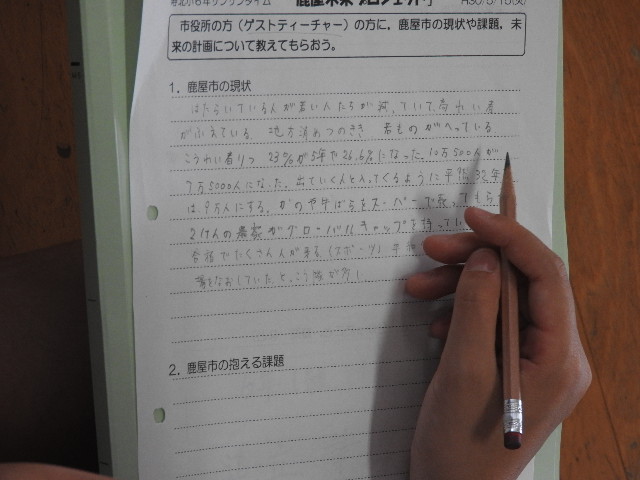 鹿屋未来プロジェクト」 H30/5/15(火)
市役所の方(ゲストティーチャー)の方に,鹿屋市の現状や課題,未
来の計画について教えてもらおう。
1.鹿屋市の現状
はたらいている人が若い人たちが っていて高れい者
がふえている 地方消めつのきき 若ものがへっている
こうれい者りつ 23%が5年で26.6%になった。10万500人が
9万5000人になった。出ていく人と入ってくるように平成32年
は9万人にする。かのや牛ばらをスーパーで 売ってもら
2けんの農家がグローバルギャップを持ってい
合宿でたくさん人が来る(スポーツ)
をなおしていた
2.鹿屋市の抱える課題